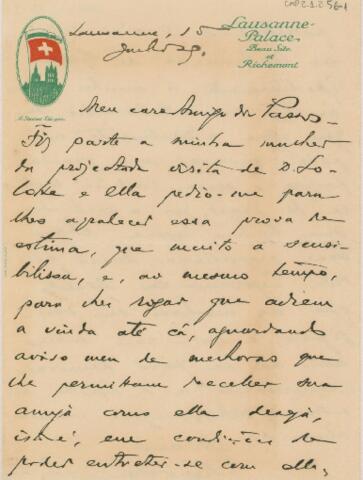 Lausanne-
Palace
Beau Site
et
Richemont
Lausanne, 15
Junho
Meu caro Amigo da Passos-
Fiz parte a minha mulher
da projectada visita de D.
e ella pedio-me para
lhes agradecer essa prova de
estima, que muito a sensi-
bilisou, e, ao mesmo tempo,
para lhes rogar que adiem
a vinda até cá, aguardando
aviso meu de melhoras que
lhe permittam receber sua
amiga como ella deseja,
isto é, em condições de
poder entreter-se com ella,